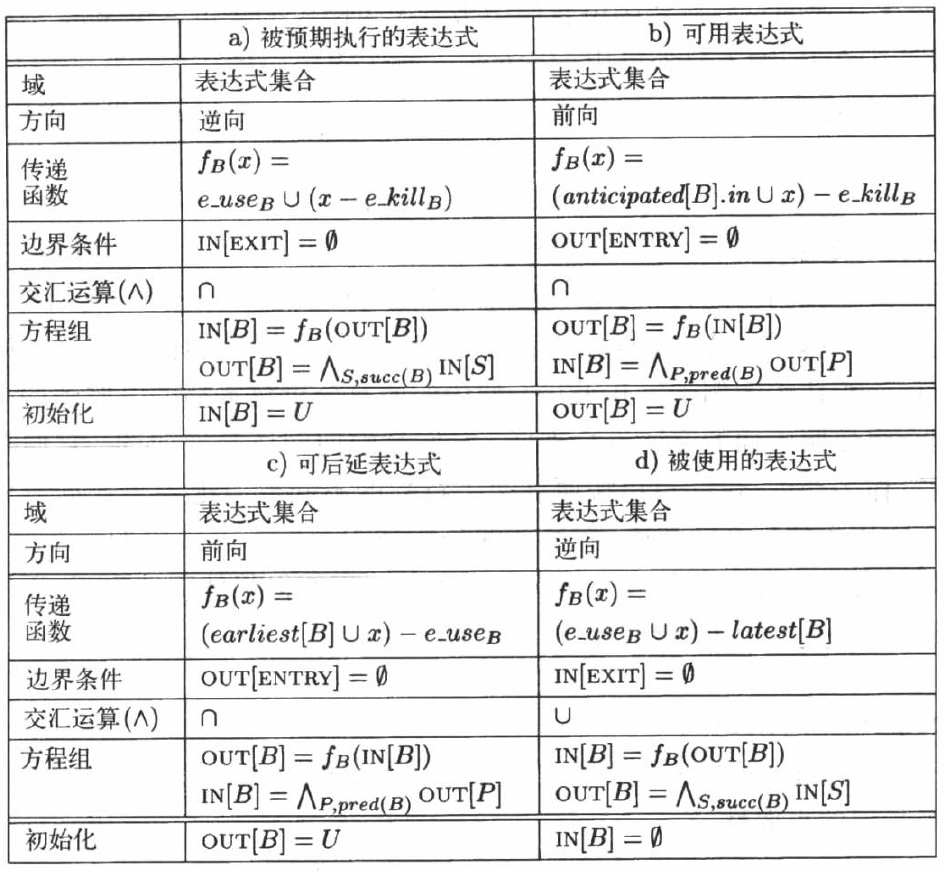 a) 被预期执行的表达式 b) 可用表达式
域 表达式集合 表达式集合
方向 逆向 前向
传递函数 f_B(x) = f_B(x) =
e_use_B ∪ (x − e_kill_B) (anticipated[B].in ∪ x) − e_kill_B
边界条件 IN[EXIT] = ∅ OUT[ENTRY] = ∅
交汇运算(∧) ∩ ∩
方程组 IN[B] = f_B(OUT[B]) OUT[B] = f_B(IN[B])
OUT[B] = ⋀_{S,succ(B)} IN[S] IN[B] = ⋀_{P,pred(B)} OUT[P]
初始化 IN[B] = U OUT[B] = U
c) 可后延表达式 d) 被使用的表达式
域 表达式集合 表达式集合
方向 前向 逆向
传递函数 f_B(x) = f_B(x) =
(earliest[B] ∪ x) − e_use_B (e_use_B ∪ x) − latest[B]
边界条件 OUT[ENTRY] = ∅ IN[EXIT] = ∅
交汇运算(∧) ∩ ∪
方程组 OUT[B] = f_B(IN[B]) IN[B] = f_B(OUT[B])
IN[B] = ⋀_{P,pred(B)} OUT[P] OUT[B] = ⋀_{S,succ(B)} IN[S]
初始化 OUT[B] = U IN[B] = ∅